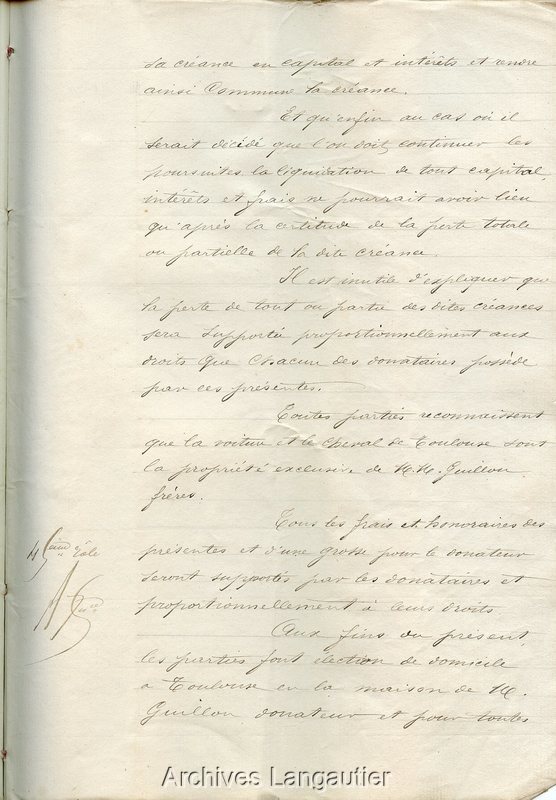 sa créance en capital et intérêts et rendre
ainsi Commune la créance.
Et qu'enfin au cas où il
serait décidé que l'on doit continuer les
poursuites la liquidation de tout capital,
intérêts et frais ne pourrait avoir lieu
qu'après la certitude de la perte totale
ou partielle de la dite créance.
Il est inutile d'expliquer que
la perte de tout ou partie des dites créances
sera supportée proportionnellement aux
droits que chacun des donataires possède
par ces présentes.
Toutes parties reconnaissent
que la voiture et le cheval de Toulouse sont
la propriété exclusive de M.M. Guillon
frères.
Tous les frais et honoraires des
présentes et d'une grosse pour le donateur
seront supportés par les donataires et
proportionnellement à leurs droits
Aux fins du présent,
les parties font élection de domicile
à Toulouse en la maison de M.
Guillon donateur et pour toutes
rôle
Archives Langautier